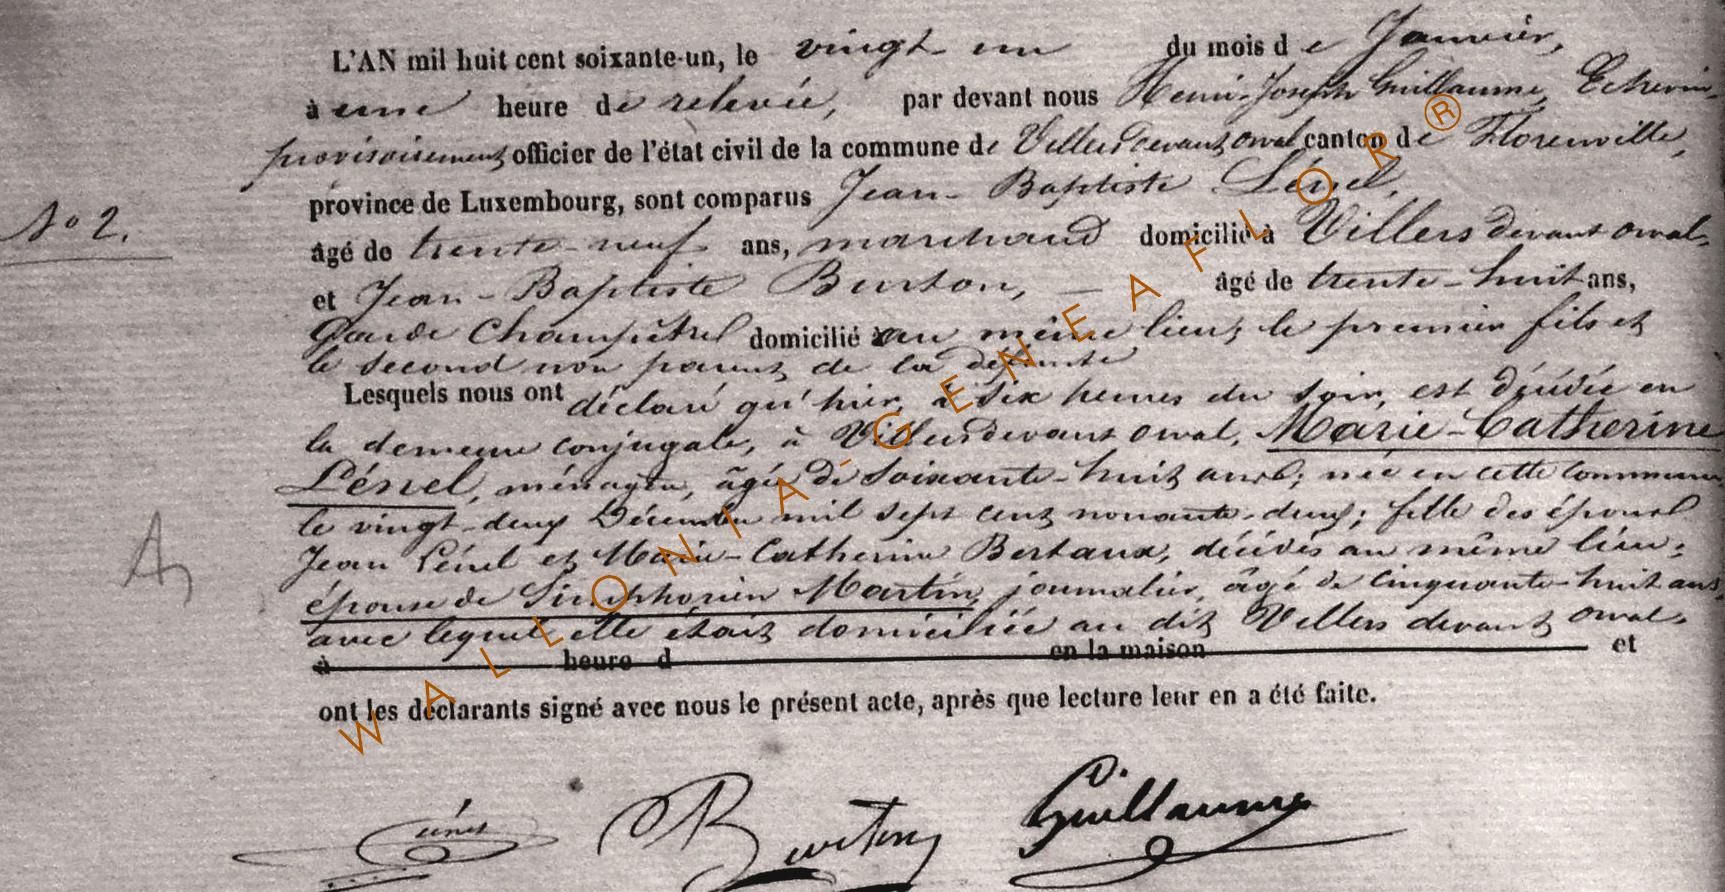 L'AN mil huit cent soixante-un, le vingt un du mois de Janvier,
à une heure de relevée, par devant nous Henri-Joseph Guillaume, Echevin
provisoirement officier de l'état civil de la commune de Villers devant orval canton de Florenville,
province de Luxembourg, sont comparus Jean-Baptiste Lénel,
N° 2.
âgé de trente-neuf ans, marchand domicilié à Villers devant orval,
et Jean-Baptiste Burton, — âgé de trente-huit ans,
Garde Champêtre domicilié au même lieu; le premier fils et
le second non parent de la défunte
Lesquels nous ont déclaré qu'hier, à six heures du soir, est décédée en
la demeure conjugale, à Villers devant orval, Marie-Catherine
Lénel, ménagère, âgée de soixante-huit ans; née en cette commune
le vingt-deux Décembre mil sept cent nonante-deux; fille des époux
Jean Lénel et Marie-Catherine Bertaux, décédés au même lieu;
épouse de Simphorien Martin, journalier, âgé de cinquante-huit ans,
avec lequel elle était domiciliée au dit Villers devant orval.
à heure d en la maison et
ont les déclarants signé avec nous le présent acte, après que lecture leur en a été faite.
Burton Guillaume
WALLONIA-GENEAFLOR®